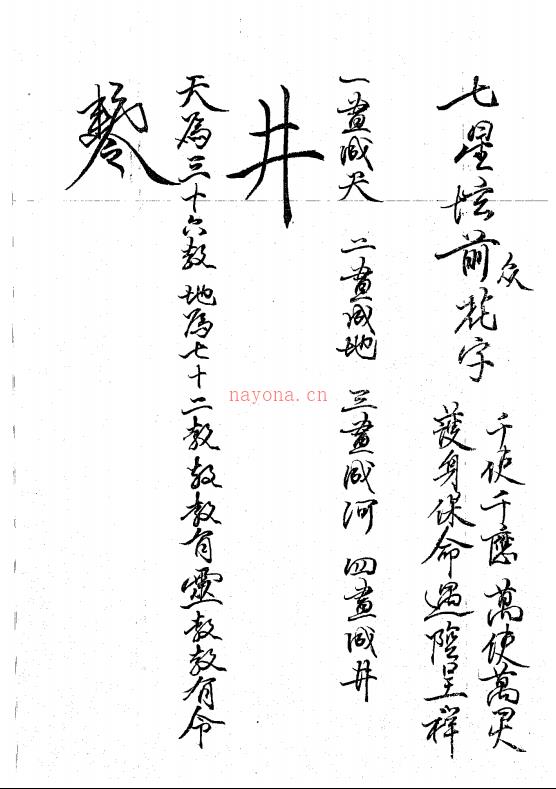 七星坛前众花字
千使千應 萬使萬灵
護身保命 遇陰呈祥
一畫成天 二畫成地 三畫成河 四畫成井
井
天為三十六教 地為七十二教 教教有靈教教有令
nayona.cn